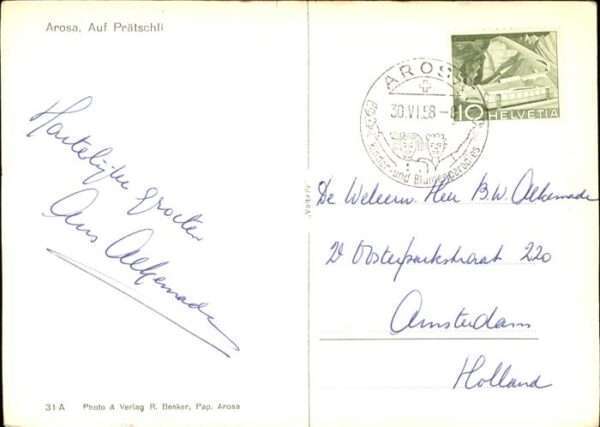 Arosa, Auf Prätschli
Hartelijke groeten
Ans Alkemade
31 A Photo & Verlag R. Benker, Pap. Arosa
AROSA
30.VI.58
Kinder- und Blumenparadies
10 HELVETIA
De Weleerw. Heer B.W. Alkemade
2e Oosterparkstraat 220
Amsterdam
Holland